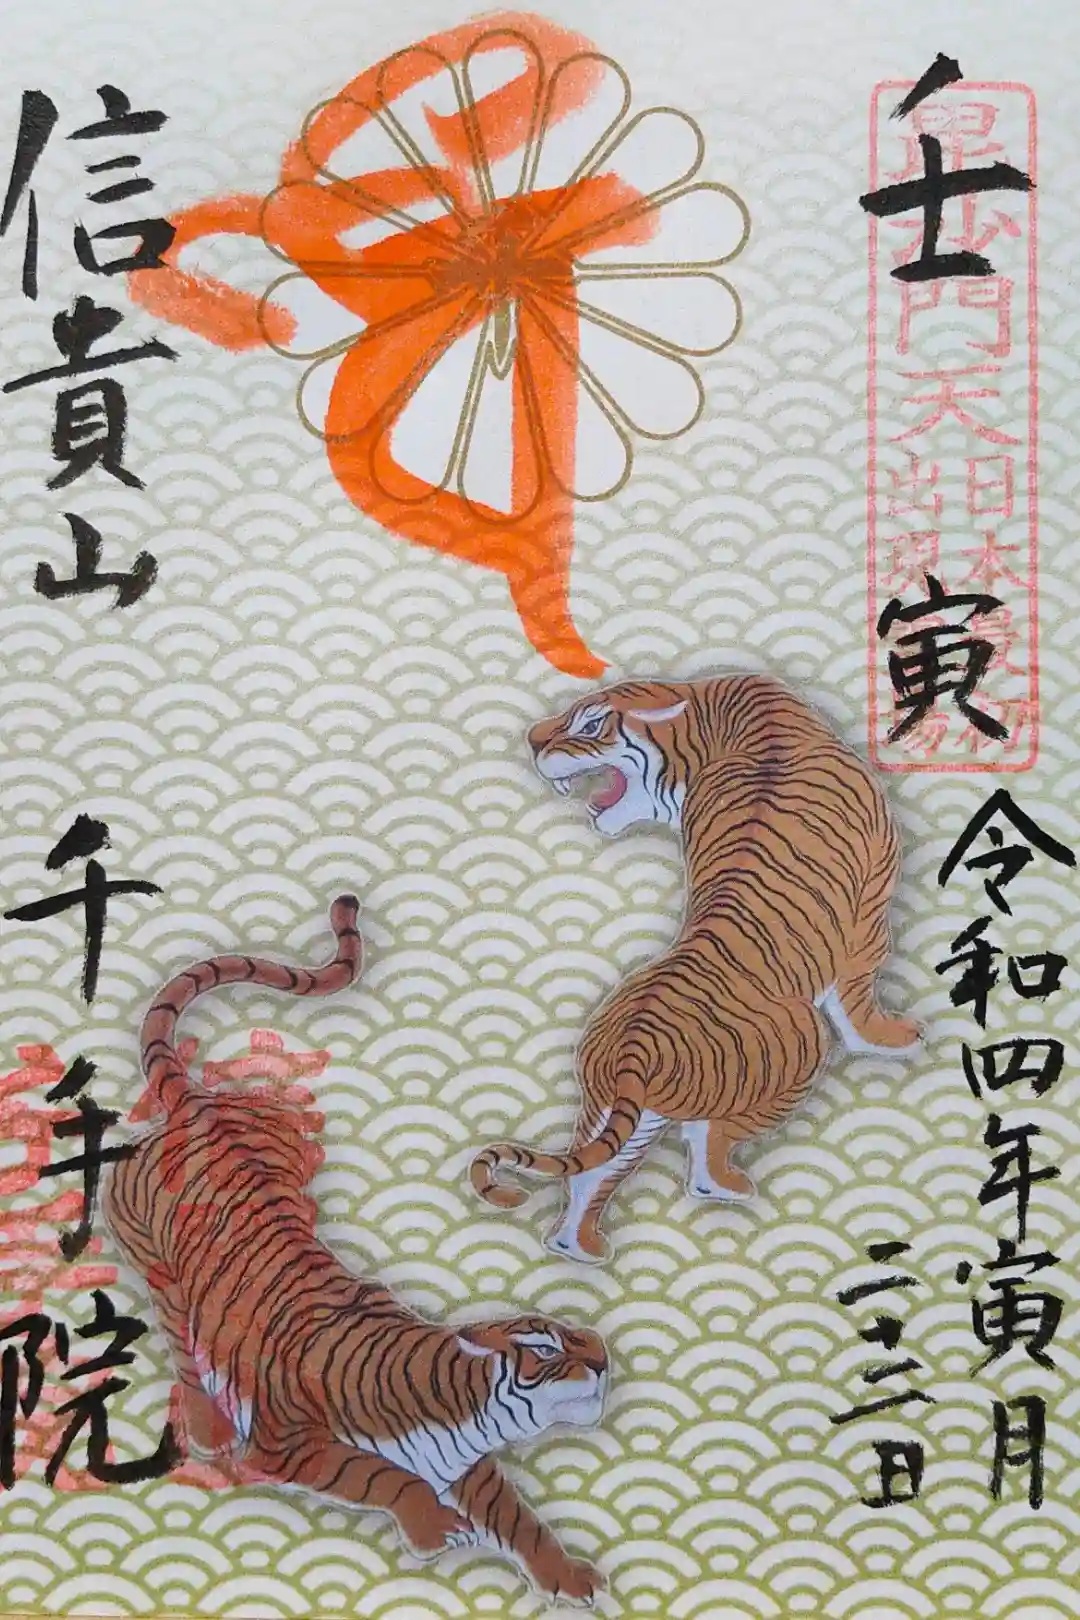 壬寅
毘沙門天日本最初
出現霊場
令和四年寅月
二十三日
信貴山
千手院